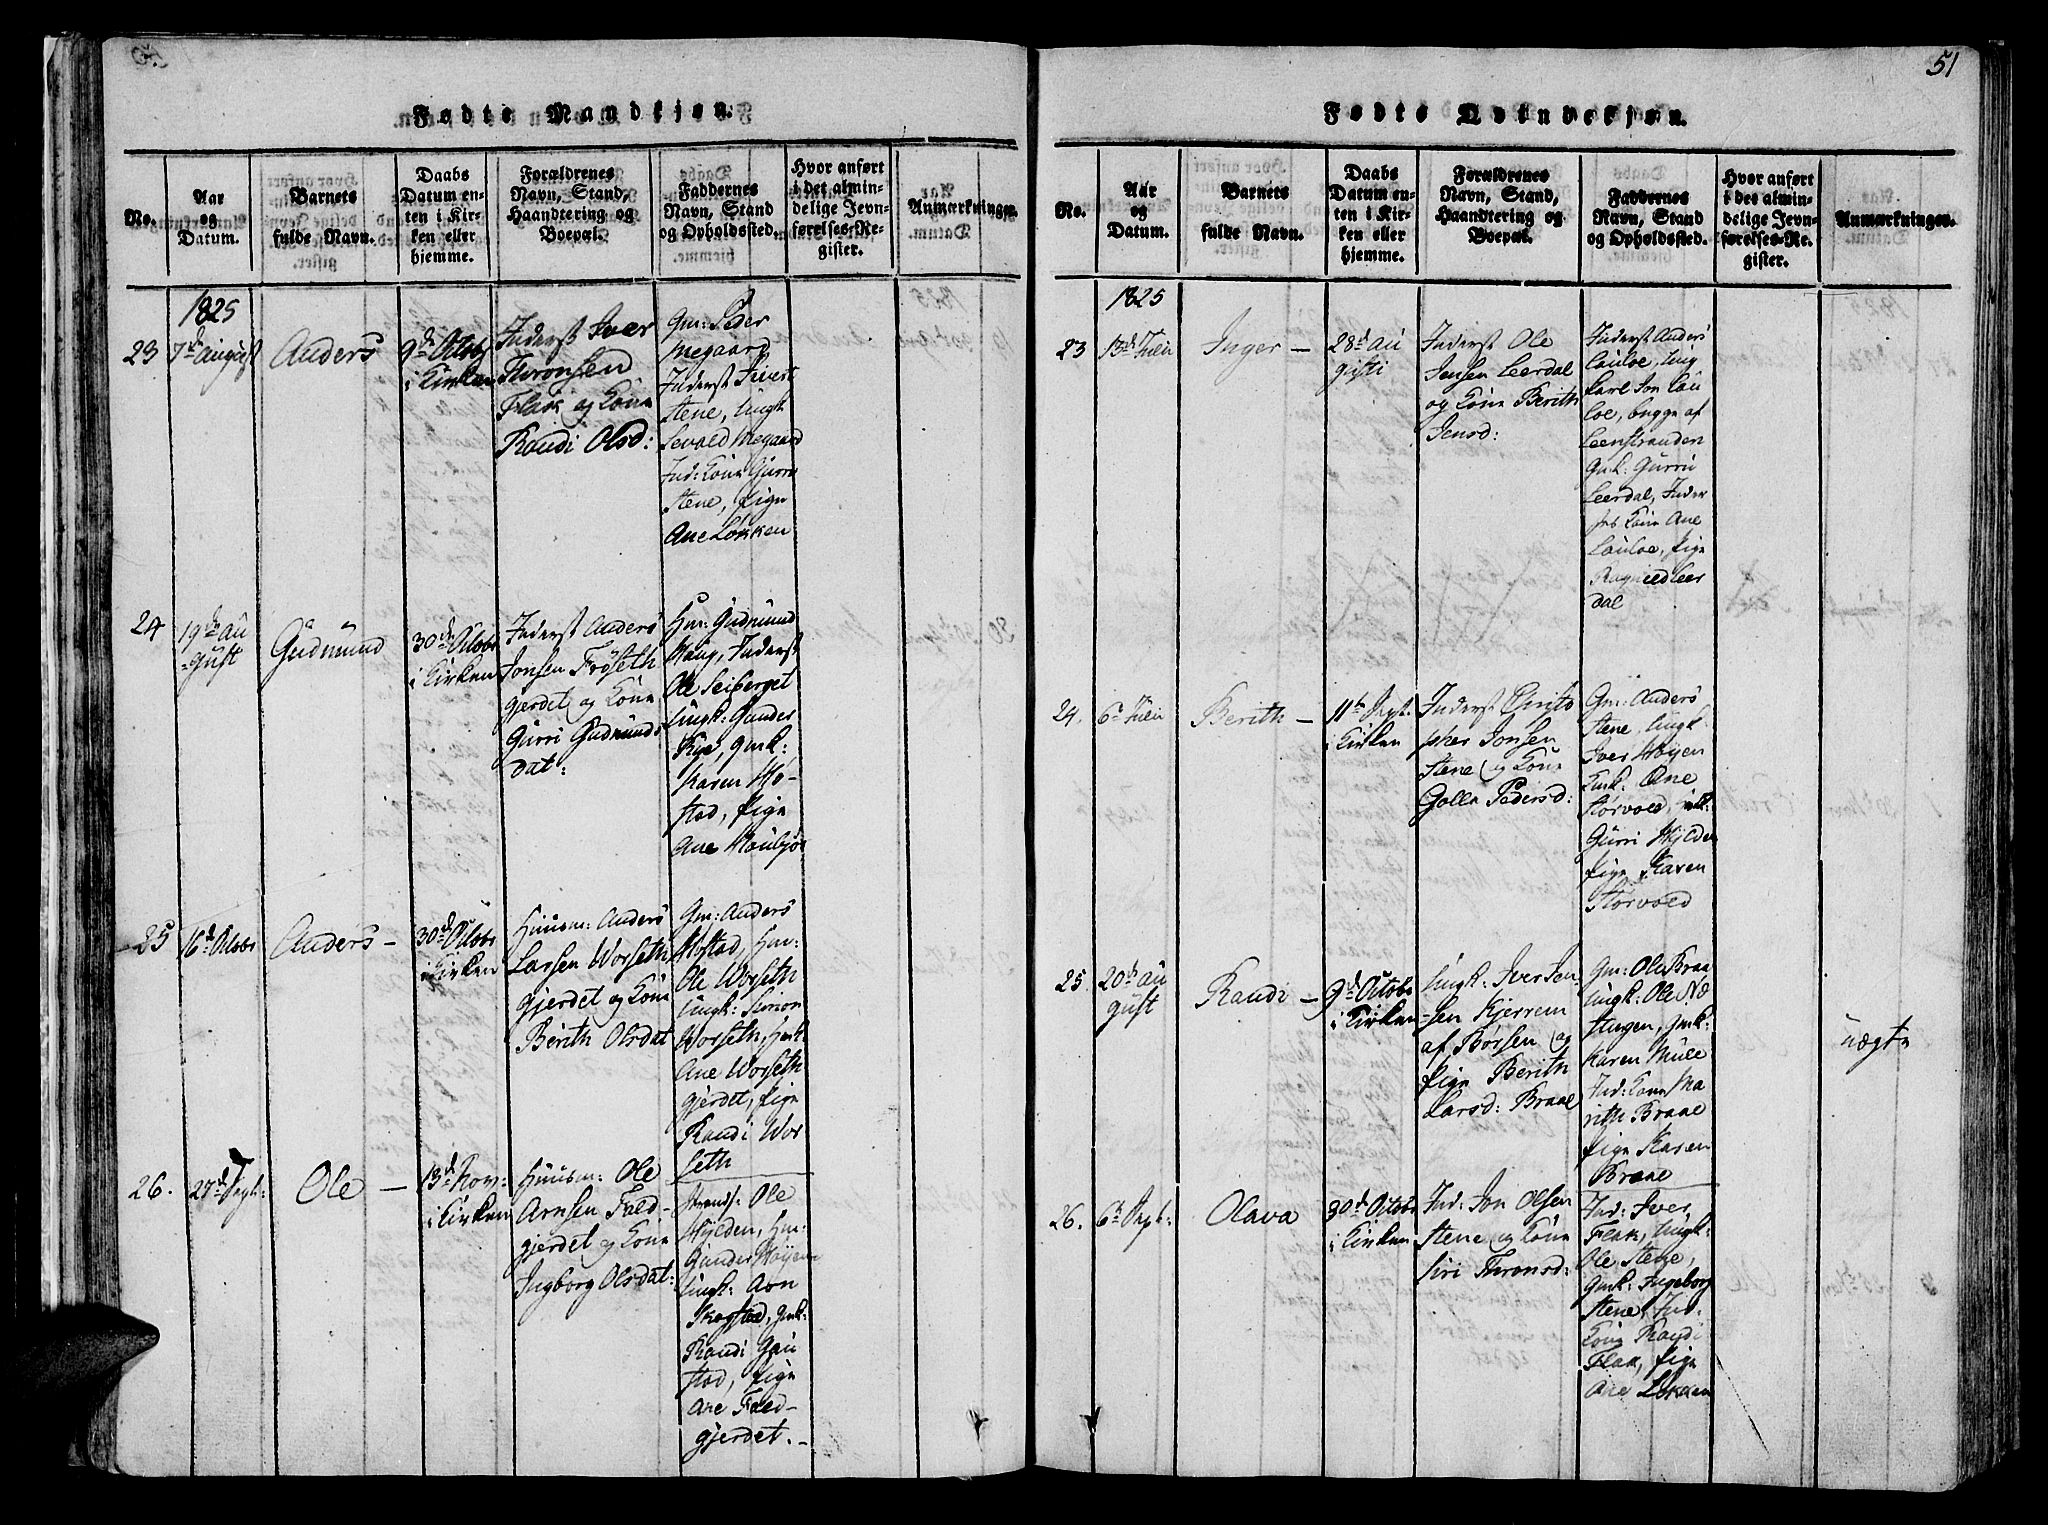 Fødte Mandkjøn.
No.
Aar
og
Datum.
Barnets
fulde Navn.
Daabs
Datum en-
ten i Kir-
ken eller
hjemme.
Forældrenes
Navn, Stand,
Haandtering og
Boepæl.
Faddernes
Navn, Stand
og Opholdssted.
Hvor anført
i det almin-
delige Jevn-
førelses-Re-
gister.
Anmærkninger.
1825
23
7de August
Anders
9de Octobr
i Kirken
Inderst Iver
Thronsen
Flak og Kone
Randi Olsd:
Gm: Peder
Megaard
Inderst Sivert
Stene, Ungk
Sevald Megaard
Ind: Kone Gurru
Stene, Pige
Ane Løkken
24
19de Au
-gust
Gudmund
30de Octobr
i Kirken
Inderst Anders
Jonsen Frøseth
gjerdet og Kone
Gurri Gudmunds
dat:
Hm: Gudmund
Haug, Inderst
Ole Leiberget
Ungk: Gunder
Rye, Gmk:
Karen Hø-
stad, Pige
Ane
25
16de Octobr
Anders -
30de Octobr
i Kirken
Huusm: Anders
Larsen Worseth
gjerdet og Kone
Berith Olsdat
Gm: Anders
Høstad, Hm:
Ole Worseth
Ungk: Simon
Worseth, Hmk:
Ane Worseth
gjerdet, Pige
Randi Wor
seth
26.
27de Sept:
Ole -
13de Nov:
i Kirken
Huusm: Ole
Arnsen Fald-
gjerdet og Kone
Ingborg Olsdat:
Strands: Ole
Hylden, Hm:
Gunder Høyen
Ungk: Arn
Skogstad, Gmk:
Randi Gau
stad, Pige
Ane Fald-
gjerdet. -
51
Fødte Qvindekjøn.
No.
Aar
og
Datum.
Barnets
fulde Navn.
Daabs
Datum en-
ten i Kir-
ken eller
hjemme.
Forældrenes
Navn, Stand,
Haandtering og
Boepæl.
Faddernes
Navn, Stand
og Opholdssted.
Hvor anført
i det almin-
delige Jevn-
førelses-Re-
gister.
Anmærkninger.
1825
23
13de Julii
Inger -
28de Au
gusti
Inderst Ole
Jensen Leerdal
og Kone Berith
Jensd:
Inderst Anders
Lauloe, Ung
karl Jon Lau
loe, begge af
Leenstranden
Gmk: Gurru
Leerdal, Inder
sts Kone Ane
Lauloe, Pige
Ragnild Leer
dal
24.
6te Julii
Berith -
11te Sept.
i Kirken
Inderst Christo
pher Jonsen
Stene og Kone
Golla Pedersd:
Gm: Anders
Stene, Ungk:
Iver Høyen
Gmk: Ane
Storvold,
Gurri Hylden
Pige Karen
Storvold
25.
20de Au
gust
Randi -
9de Octobr
i Kirken
Ungk: Iver Jon-
-sen Kjerrem
af Børsen og
Pige Berith
Larsd: Braae
Gm: Ole Braa
Ungk: Ole Næ
stugen, Gmk:
Karen Mule
Ind: Kone Ma
rith Braae
Pige Karen
Braae
nægte
26.
6te Sept:
Olava
30de Octobr
i Kirken
Ind: Jon Olsen
Stene og Kone
Siri Thronsd:
Ind: Iver
Flak, Ungk:
Ole Stene,
Gmk: Ingeborg
Stene, Ind:
Kone Randi
Flak, Pige
Ane Løkken